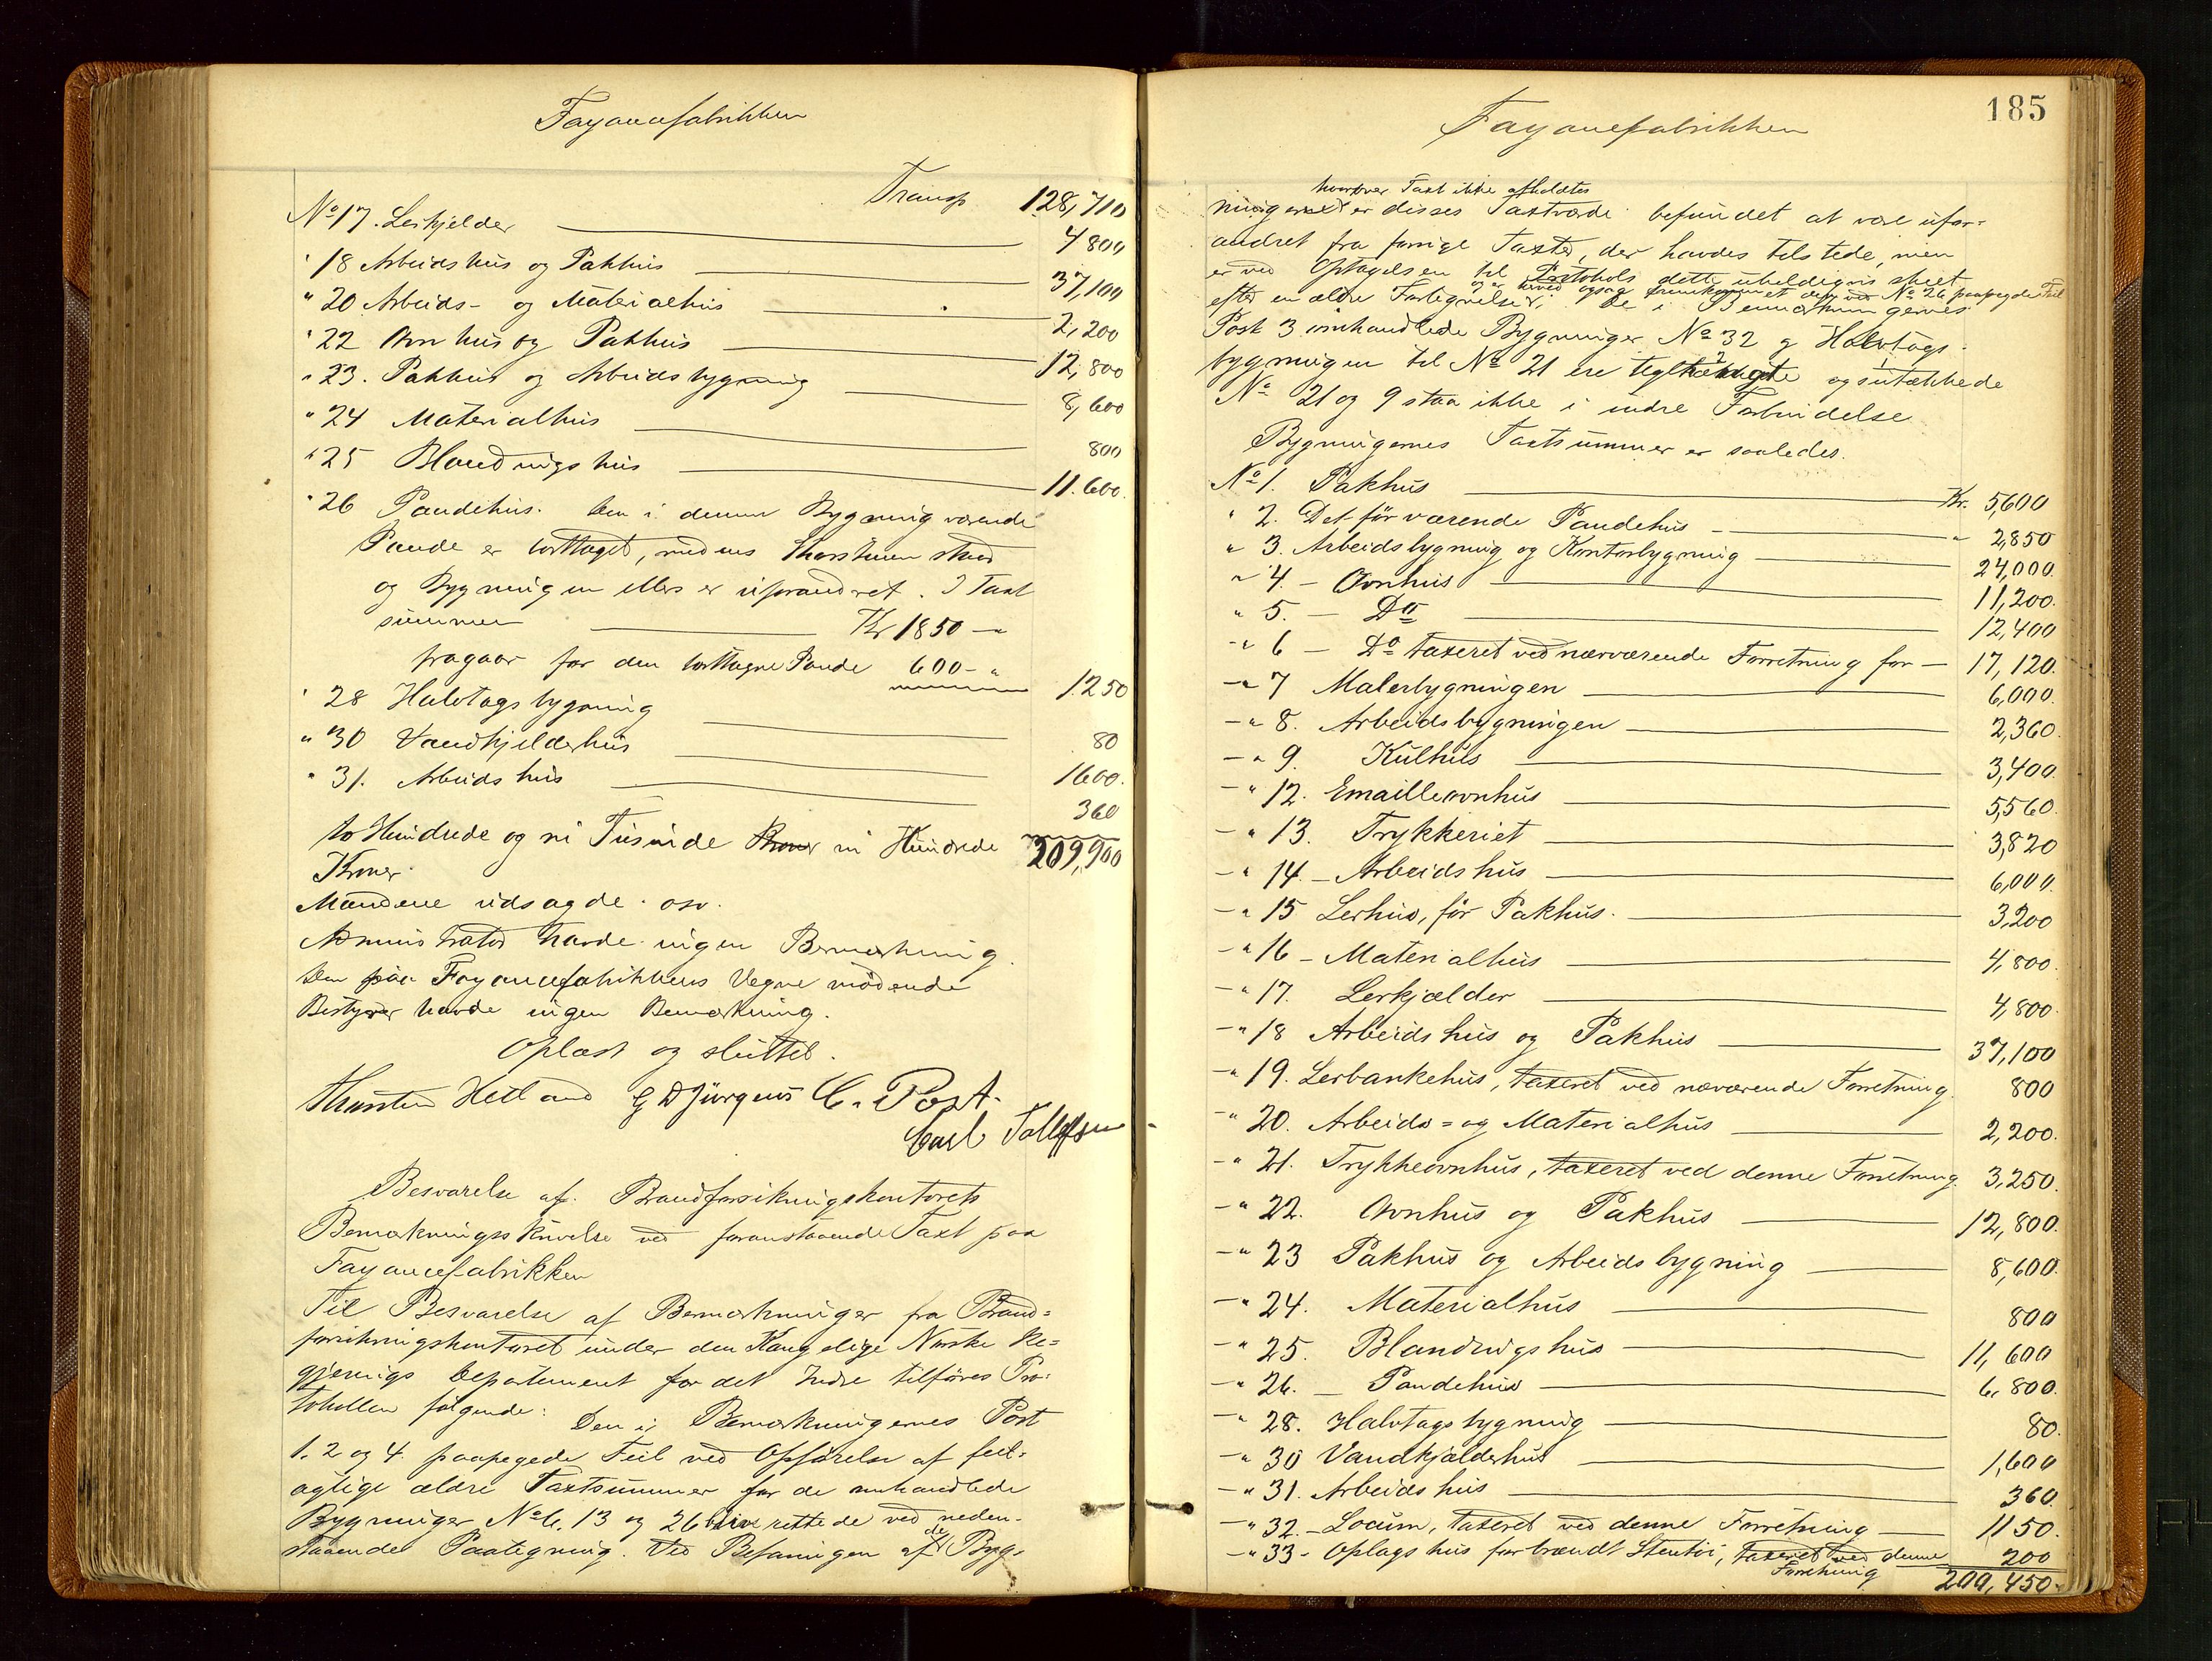 Fayancefabrikken
Transp 128,710
No 17. Lerkjelder 4800
" 18 Arbeidshus og Pakhus 37,100
" 20 Arbeids- og Materialhus 2,200
" 22 Ovnhus og Pakhus 12,800
" 23. Pakhus og Arbeidsbygning 8,600
" 24 Materialhus 800
" 25 Blandingshus 11.600.
" 26 Pandehus. Den i denne Bygning værende
Pande er borttaget, medens Skorstenen staar
og Bygningen ellers er uforandret. I Taxt
summen Kr 1850 - "
fragaar for den borttagne Pande 600 - " 1250
" 28 Halvtagsbygning 80
" 30 Vandkjelderhus 1600.
" 31. Arbeidshus 360
to Hundrede og ni Tusinde Kroner ni Hundrede 209,900
Kroner.
Mændene udsagde osv.
Administrator havde ingen Bemærkning.
Den paa Fayancefabrikkens Vegne mødende
Bestyrer havde ingen Bemærkning.
Oplæst og sluttet.
Thorsten Hetland G D Jürgens C. Post.
Carl Tollefsen
Besvarelse af Brandforsikringskontorets
Bemærkningsskrivelse ved foranstaaende Taxt paa
Fayancefabrikken
Til Besvarelse af Bemærkninger fra Brand=
forsikringskontoret under den Kongelige Norske Re=
gjerings Departement for det Indre tilføres Pro=
tokollen følgende: Den i Bemærkningernes Post
1. 2 og 4. paapegede Feil ved Opførelse af feil-
agtige ældre Taxtsummer for de omhandlede
Bygninger No 6. 13 og 26 blive rettede ved neden-
staaende Paategning. Ved Befaringen af de Byg-
185
Fayancefabrikken
hvorover Taxt ikke afholdtes
ninger er disses Taxtværdi befundet at være ufor=
andret fra forrige Taxter, der havdes tilstede, men
er ved Optagelsen til Protokols dette uheldigvis skeet
og er herved ogsaa fremkommet den ved No 26 paapegede Feil
efter en ældre Fortegnelse; De i Bemærkningernes
Post 3 omhandlede Bygninger No 32 og Halvtags-
bygningen til No 21 ere teglhængte og sutækkede
No 21 og 9 staa ikke i indre Forbindelse
Bygningernes Taxtsummer er saaledes.
No 1. Pakhus Kr. 5600
" 2. Det før værende Pandehus " 2,850
" 3. Arbeidsbygning og Kontorbygning 24,000.
" 4. - Ovnhus 11,200.
" 5. - Do 12,400
- " 6 - Do taxeret ved nærværende Forretning for - 17,120.
- " 7 Malerbygningen 6,000.
- " 8. Arbeidsbygningen 2,360.
- " 9. Kulhus 3,400.
- " 12. Emailleovnhus 5,560.
- " 13. Trykkeriet 3,820
- " 14 - Arbeidshus 6,000.
- " 15 Lerhus, før Pakhus. 3,200
- " 16 - Materialhus 4,800.
- " 17. Lerkjælder 4,800.
- " 18 Arbeidshus og Pakhus 37,100
- " 19. Lerbankehus, taxeret ved nærværende Forretning. 800
- " 20. Arbeids= og Materialhus 2,200.
- " 21. Trykkeovnhus, taxeret ved denne Forretning. 3,250.
- " 22. Ovnhus og Pakhus 12,800.
- " 23 Pakhus og Arbeidsbygning 8,600.
- " 24. Materialhus 800
- " 25. Blandingshus 11,600
- " 26. - Pandehus 6,800.
- " 28. Halvtagsbygning 80.
- " 30 Vandkjælderhus 1,600
- " 31. Arbeidshus 360.
- " 32. - Locum, taxeret ved denne Forretning 1150.
- " 33 - Oplagshus for brændt Stentøi, taxeret ved denne 200
Forretning 200,450.